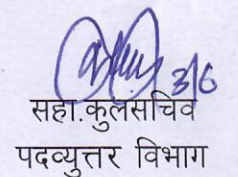 3/6
सहा.कुलसचिव
पदव्युत्तर विभाग